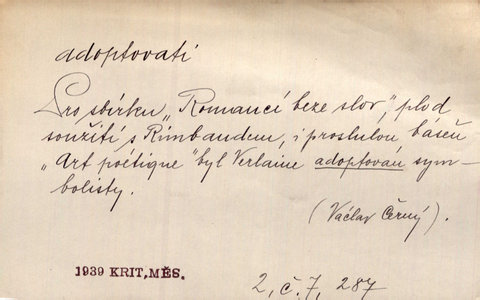 adoptovati
Pro sbírku „Romancí beze slov", plod
soužití s Rimbaudem, i proslulou báseň
„Art poétique" byl Verlaine adoptován sym-
bolisty.
(Václav Černý).
1939 KRIT, MĚS.
2, č. 7, 287